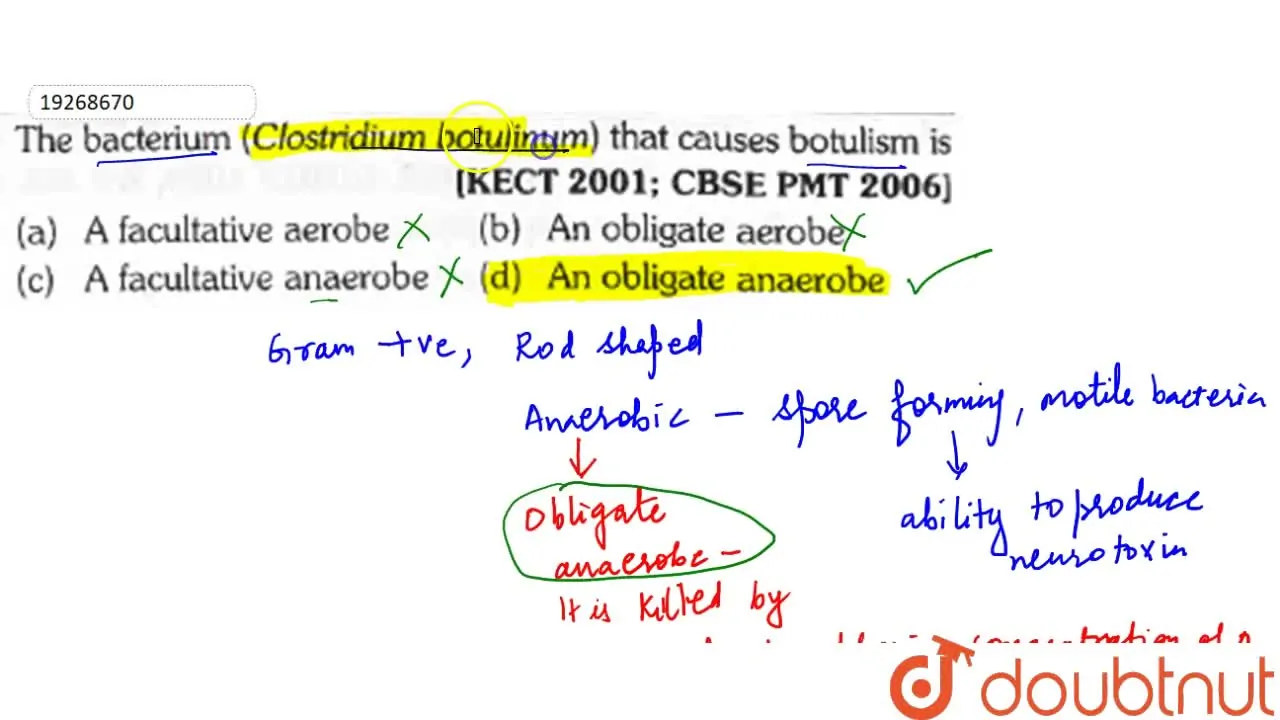 19268670
The bacterium (Clostridium botulinum) that causes botulism is
[KECT 2001; CBSE PMT 2006]
(a) A facultative aerobe (b) An obligate aerobe
(c) A facultative anaerobe (d) An obligate anaerobe
Gram +ve, Rod shaped
Anaerobic – spore forming, motile bacteria
Obligate
anaerobe –
ability to produce
neurotoxin
It is killed by
concentration of
doubtnut